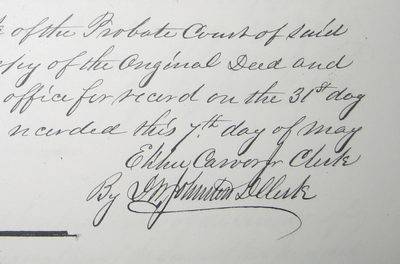 of the Probate Court of said
opy of the Original Deed and
office for record on the 31st day
recorded this 7th day of May
Clerk
By Johnston D Clerk